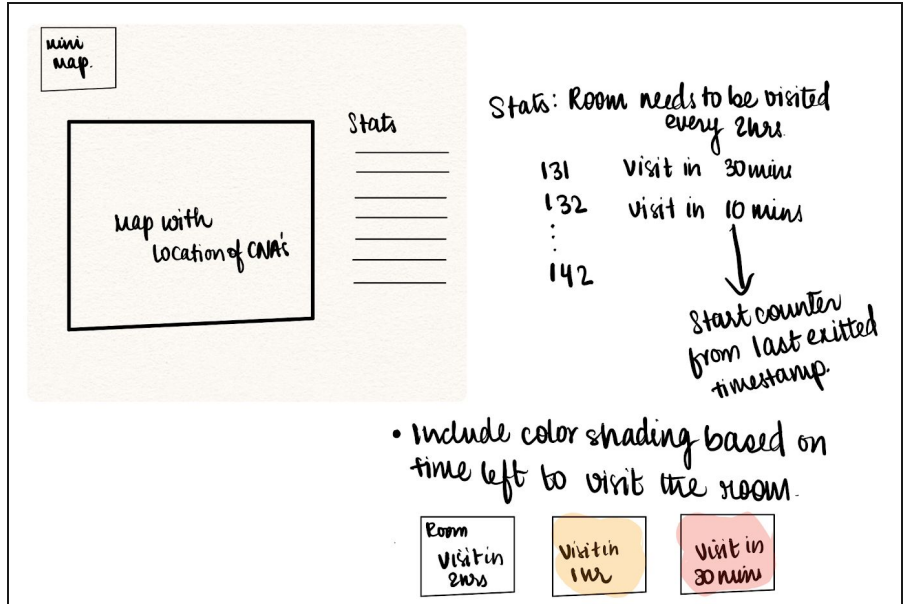 Mini
Map.
Map with
Location of CNA's
Stats
Stats: Room needs to be visited
every 2hrs.
131 visit in 30 mins
132 visit in 10 mins
⋮
142
Start counter
from last exitted
timestamp.
• Include color shading based on
time left to visit the room.
Room
Visit in
2hrs
Visit in
1 hr
Visit in
30 mins